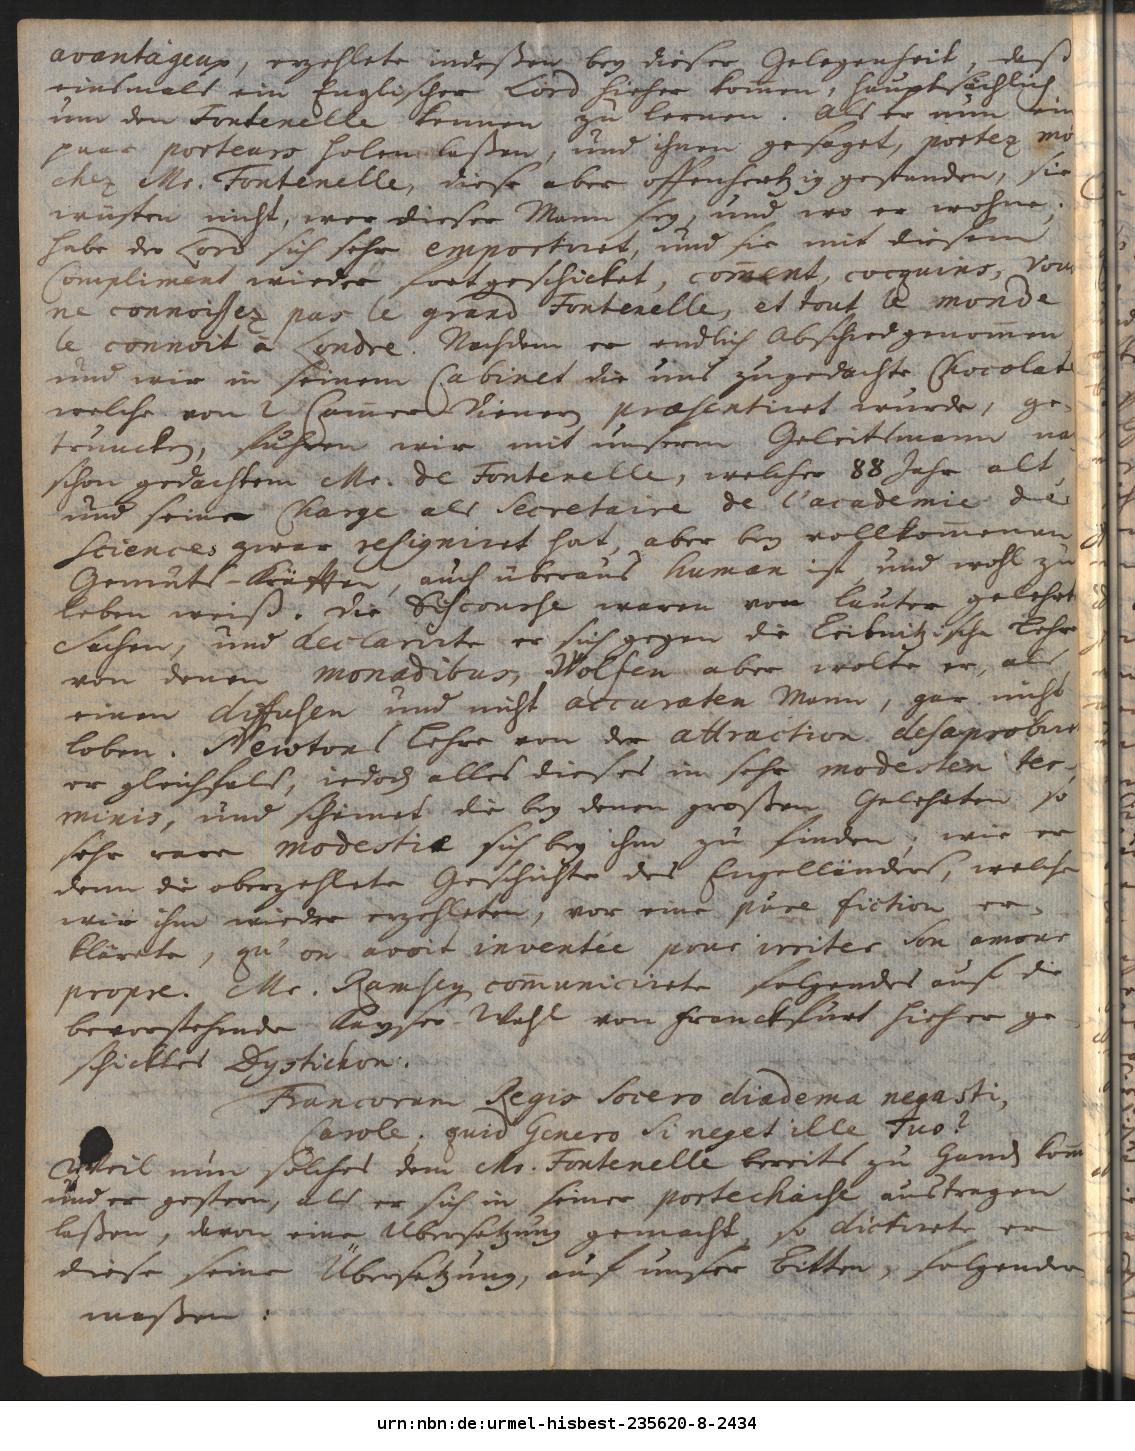 avantageux, erzehlete indeßen bey dieser Gelegenheit, daß
einsmals ein Englischer Lord hieher kom̅en, hauptsächlich
um den Fontenelle kennen zu lernen. Als er nun ein
paar porteurs holen laßen, und ihnen gesaget, portez mo
chez Mr. Fontenelle, diese aber offenhertzig gestanden, sie
wüsten nicht, wer dieser Mann sey, und wo er wohne;
habe der Lord sich sehr emportiret, und sie mit diesem
Compliment wieder fortgeschicket, com̅ent, cocquins, vous
ne connoissez pas le grand Fontenelle, et tout le monde
le connoit à Londre. Nachdem er endlich Abschied genom̅en
und wir in seinem Cabinet die uns zugedachte Chocolate
welche von 2 Cam̅er Dienern præsentiret wurde, ge-
truncken, fuhren wir mit unserm Geleitsmann na
schon gedachtem Mr. de Fontenelle, welcher 88 Jahr alt
und seine Charge als Secretaire de l'academie des
sciences zwar resigniret hat, aber bey vollkom̅enen
Gemüts-Kräfften, auch überaus human ist, und wohl zu
leben weiß. Die Discourse waren von lauter gelehrt
Sachen, und declarirte er sich gegen die Leibnitzische Lehre
von denen monadibus, Wolfen aber wolte er, als
einen diffusen und nicht accuraten Mann, gar nicht
loben. Newtons Lehre von der attraction desaprobir
er gleichfals, iedoch alles dieses in sehr modesten ter-
minis, und scheinet die bey denen großen Gelehrten so
sehr rare modestie sich bey ihm zu finden; wie er
denn die oberzehlete Geschichte des Engelländers, welche
wir ihm wieder erzehleten, vor eine pure fiction er-
klärete, qu'on avoit inventée pour irriter son amour
propre. Mr. Ramsey com̅unicirete folgendes auf die
bevorstehende Kayser-Wahl von Franckfurt hieher ge-
schicktes Dystichon:
Francorum Regis Socero diadema negasti,
Carole; quid Genero si neget ille Tuo?
Weil nun solches dem Mr. Fontenelle bereits zu Handen kom̅
und er gestern, als er sich in seiner portechaise austragen
laßen, davon eine Ubersetzung gemacht, so dictirete er
diese seine Übersetzung, auf unser Bitten, folgender
maßen:
urn:nbn:de:urmel-hisbest-235620-8-2434